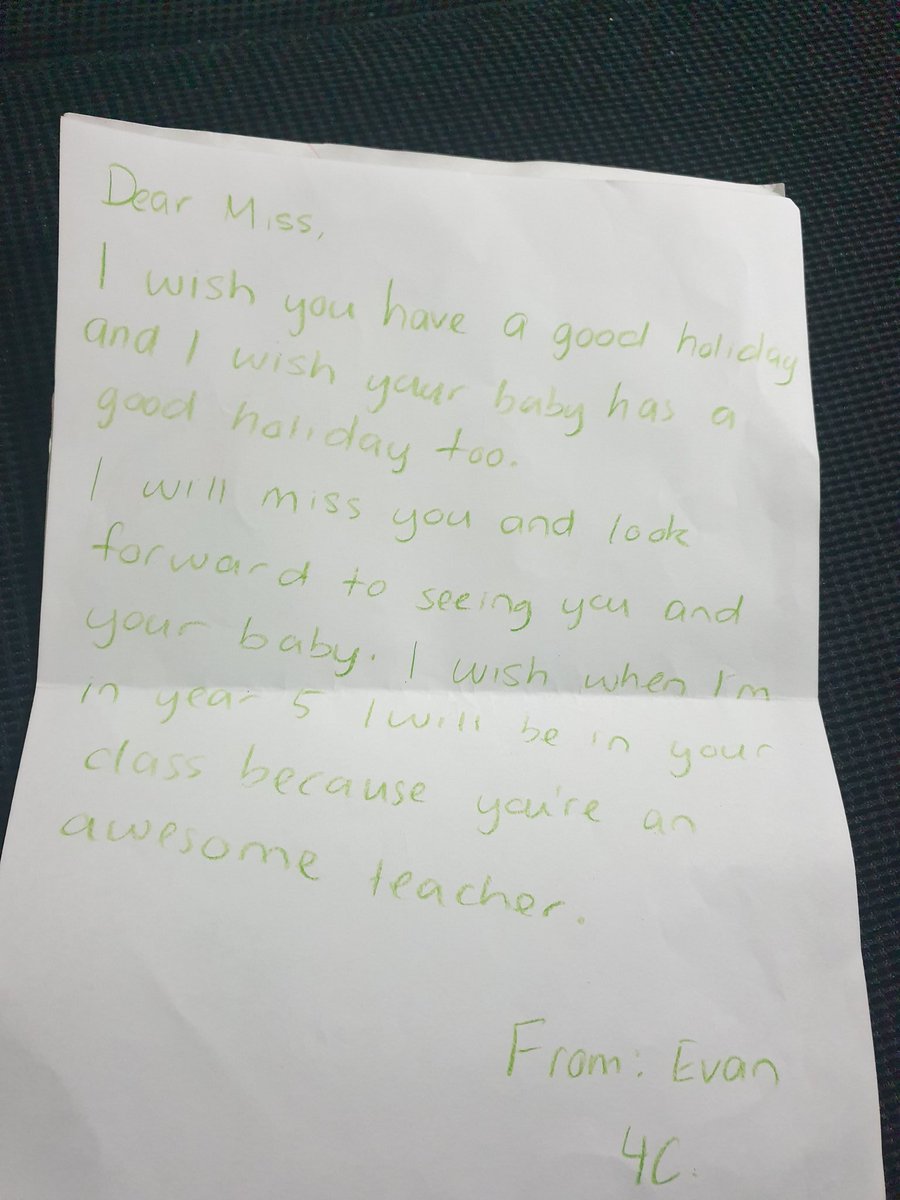 Dear Miss,
I wish you have a good holiday
and I wish your baby has a
good holiday too.
I will miss you and look
forward to seeing you and
your baby. I wish when I'm
in year 5 I will be in your
class because you're an
awesome teacher.
From: Evan
4C.